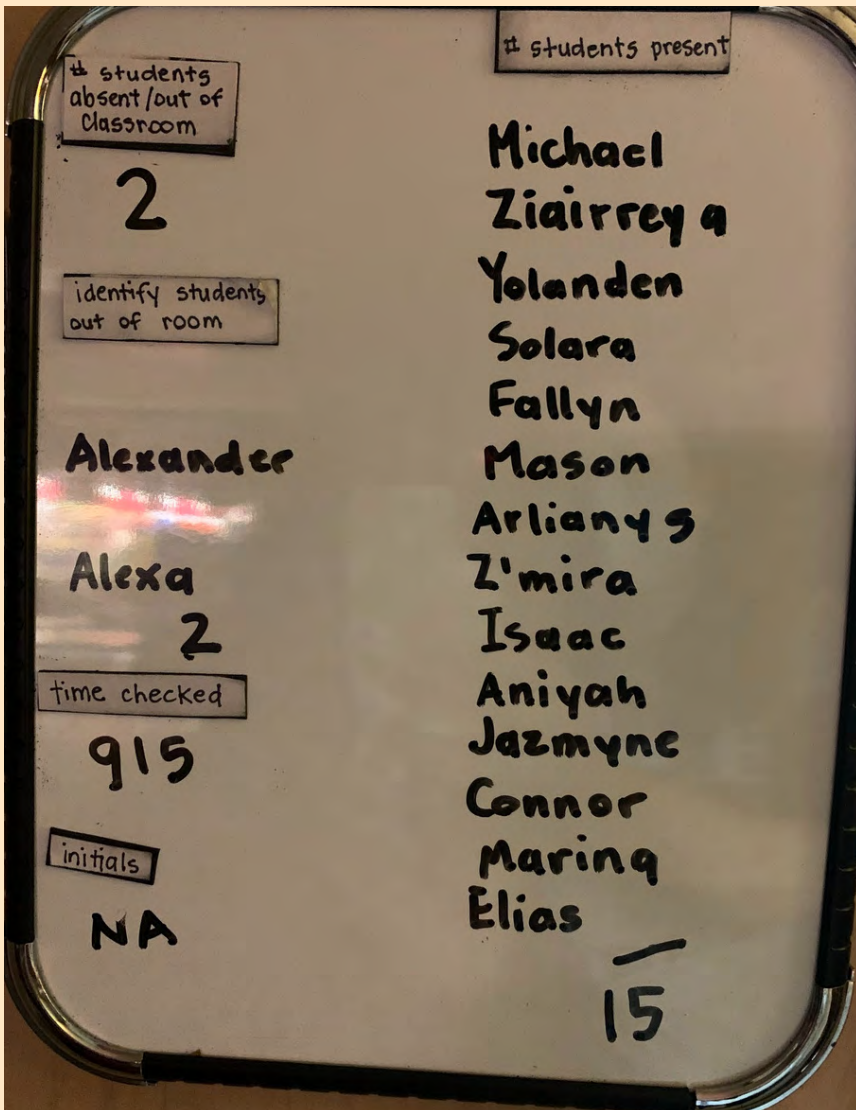 # students
absent/out of
classroom
2
identify students
out of room
Alexander
Alexa
2
time checked
915
initials
NA
# students present
Michael
Ziairrey a
Yolanden
Solara
Fallyn
Mason
Arlianys
Z'mira
Isaac
Aniyah
Jazmyne
Connor
Marina
Elias
15